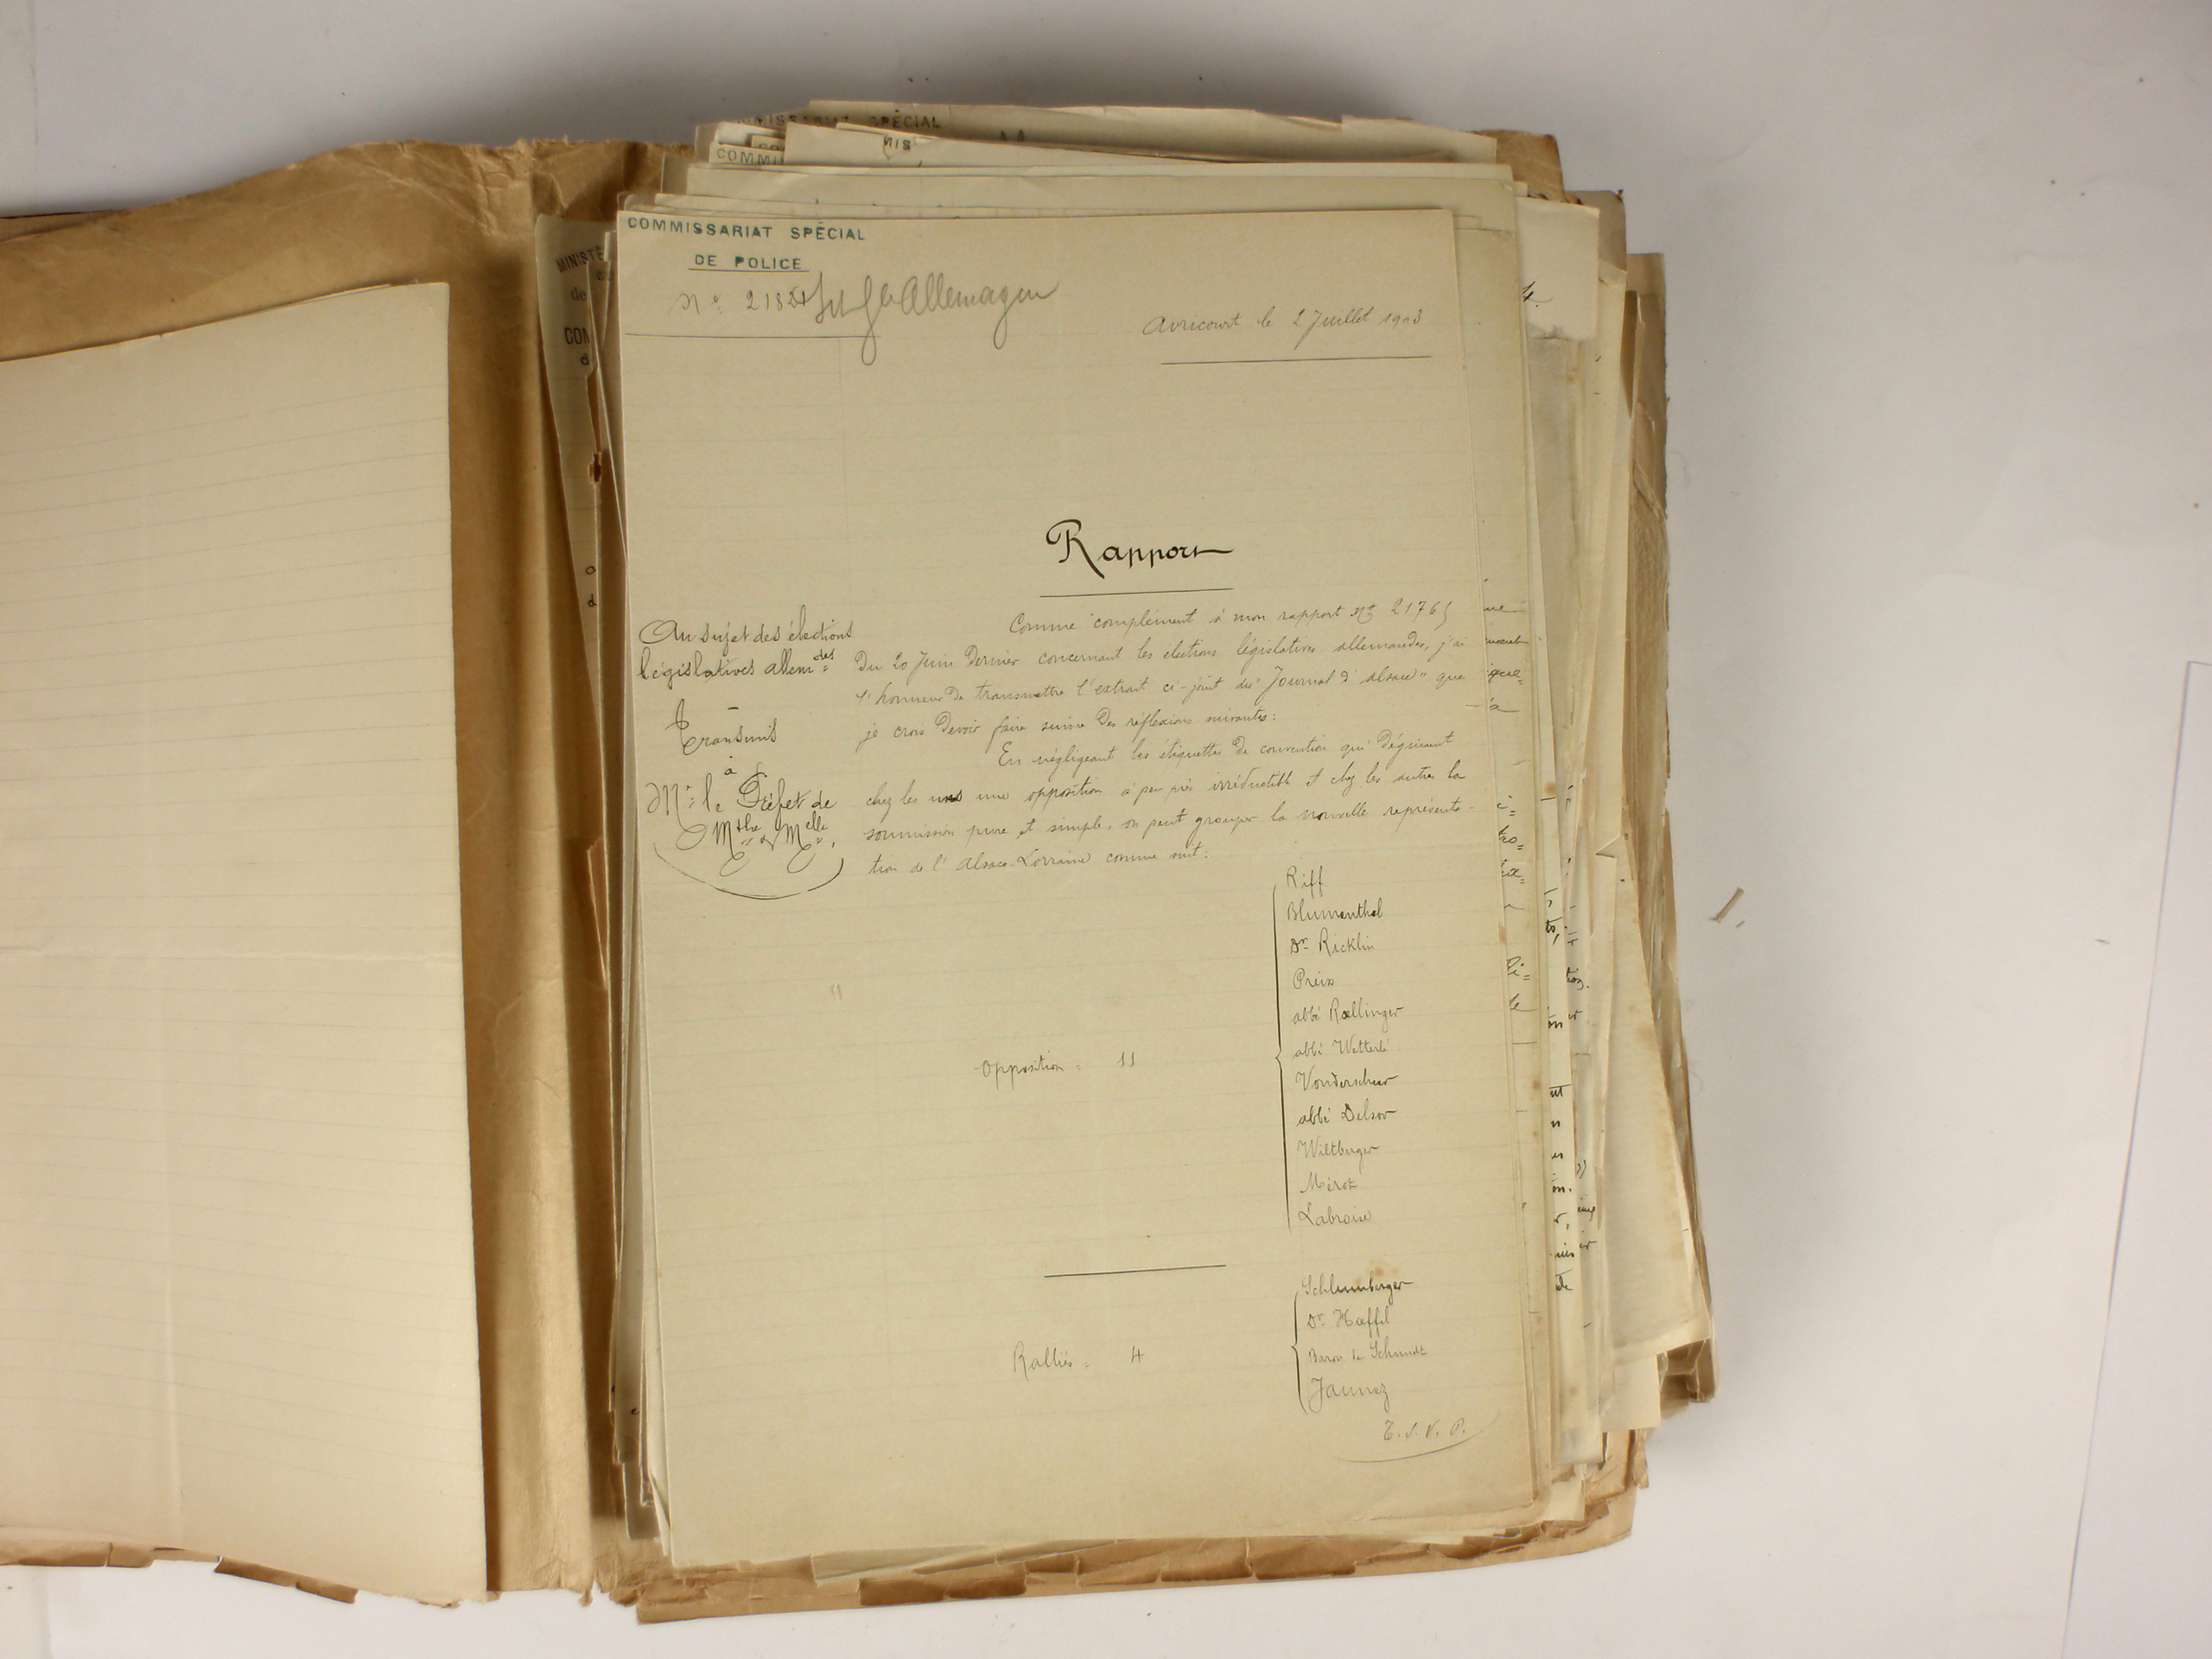 COMMISSARIAT SPÉCIAL
DE POLICE
Avricourt le 2 Juillet 1903
Rapport
Au sujet des élections
législatives allem des
Transmis
à
Mr le Préfet de
Mthe & Melle
Comme complément à mon rapport No 2176
du 20 Juin dernier concernant les élections législatives allemandes, j'ai
l'honneur de transmettre l'extrait ci-joint du "Journal d'Alsace" que
je crois devoir faire suivre des réflexions suivantes:
En négligeant les étiquettes de convention qui déguisent
chez les uns une opposition à peu près irréductible et chez les autres la
soumission pure et simple, on peut grouper la nouvelle représenta-
tion de l'Alsace-Lorraine comme suit:
Opposition = 11
Riff
Blumenthal
Dr Ricklin
Preiss
abbé Rœllinger
abbé Wetterlé
Vonderscheer
abbé Delsor
Wiltberger
Mérot
Labroise
Ralliés = 4
Schlumberger
Dr Hœffel
Baron de Schmidt
Jaunez
T.S.V.P.
COMMISSARIAT SPÉCIAL
COMMI
MINISTÈ
de
CON